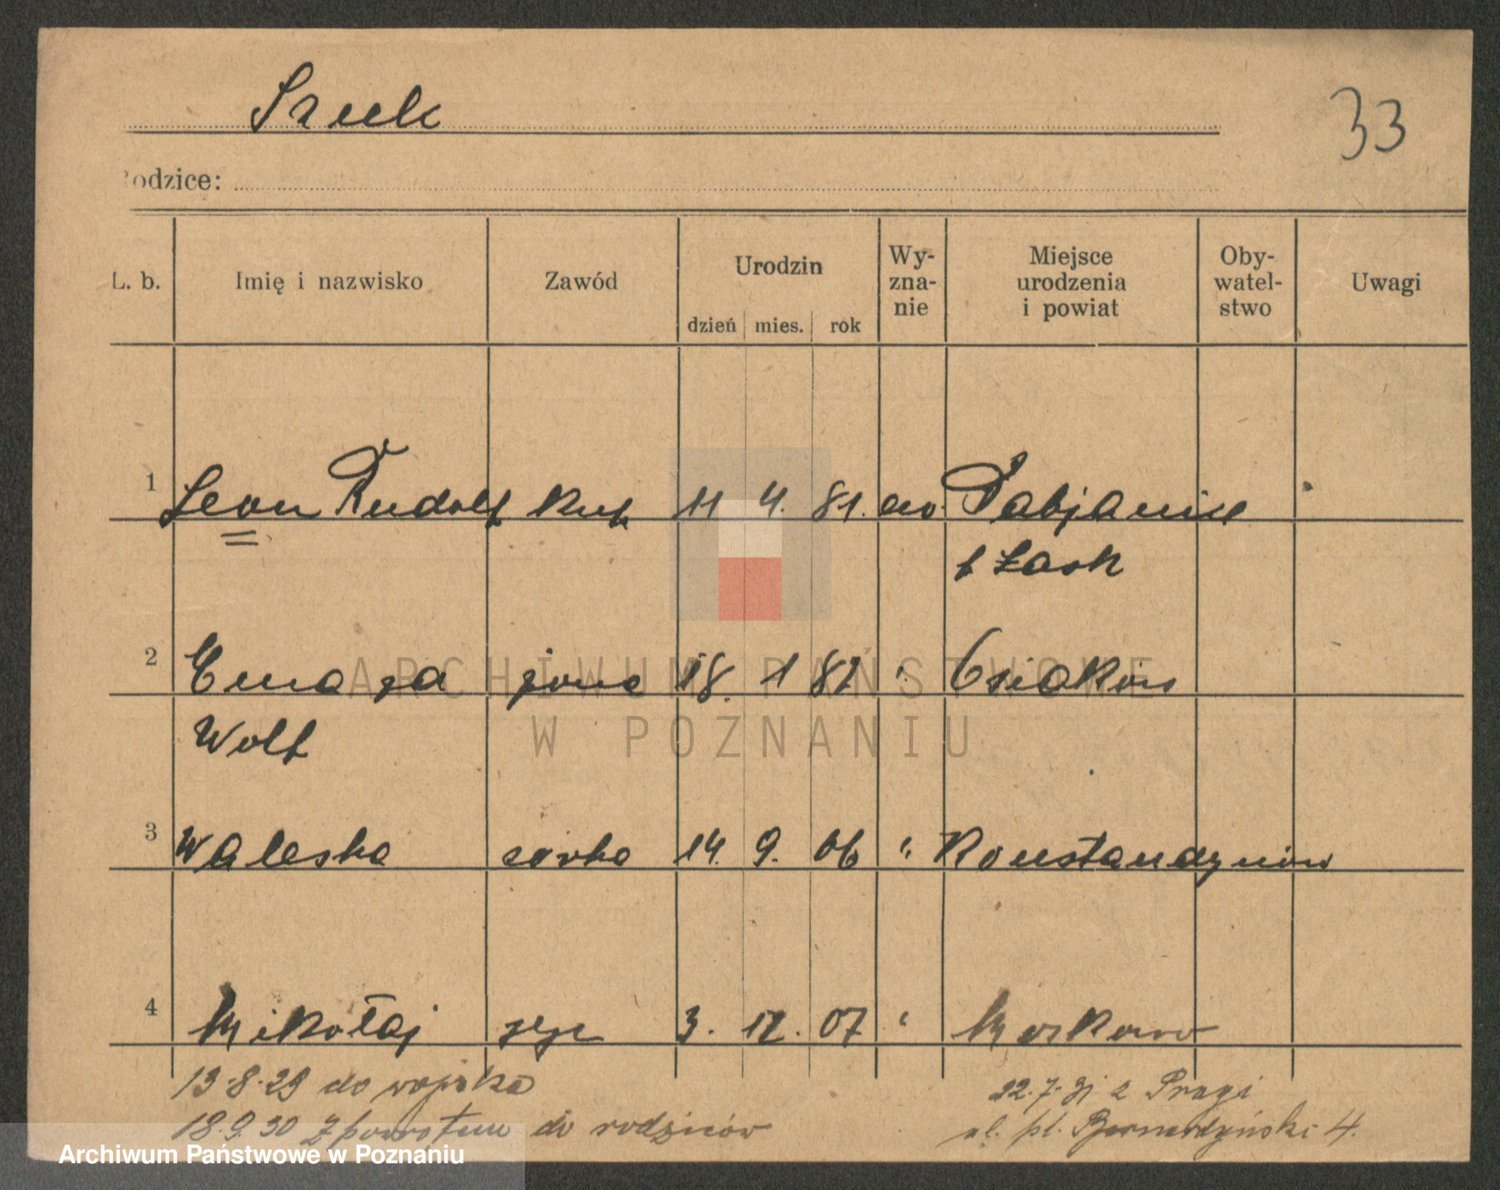 Szulc
33
Rodzice:
L. b. Imię i nazwisko Zawód Urodzin dzień mies. rok Wy-zna-nie Miejsce urodzenia i powiat Oby-watel-stwo Uwagi
1 Leon Rudolf 11 4. 81. Pabjanice
Łask
2 żona 18. 1 82 "
Wolf
3 Waleska córka 14. 9. 06 " Konstandynów
4 Mikołaj syn 3. 12. 07 "
13.8.29 do wojska
22.7.31 z Pragi
18.9.30 z powrotem do rodziców
pl. Bernardyński 4.
ARCHIWUM PAŃSTWOWE
W POZNANIU
Archiwum Państwowe w Poznaniu